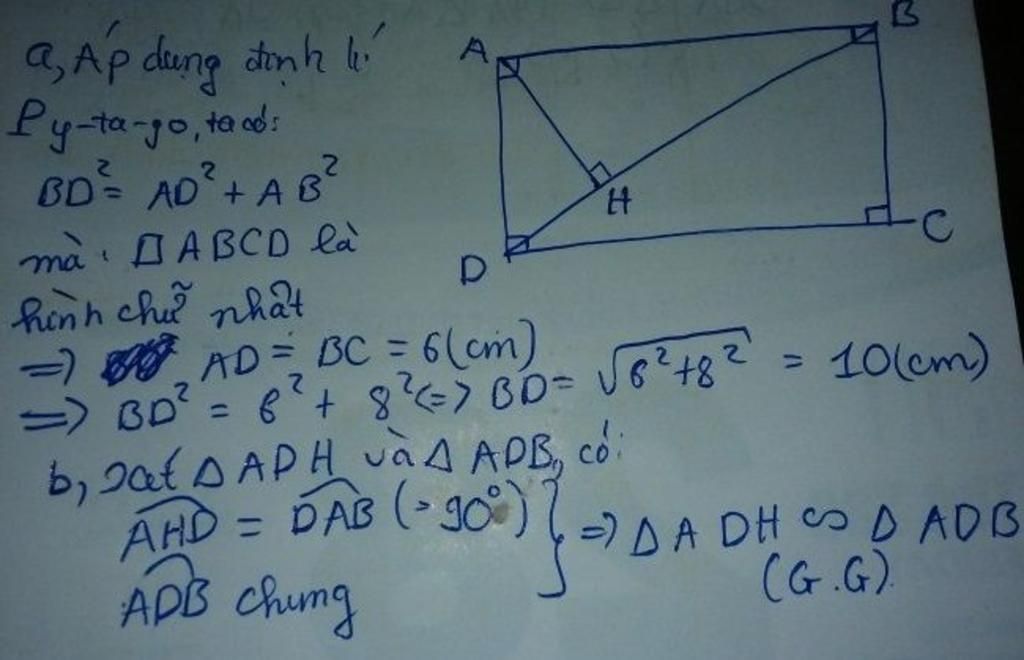 a, Áp dụng định lí
Py-ta-go, ta có:
BD² = AD² + AB²
mà: □ABCD là
hình chữ nhật
=> AD = BC = 6(cm)
=> BD² = 6² + 8² <=> BD = √6²+8² = 10(cm)
b, xét △ADH và △ADB, có:
AHD = DAB (= 90°) } => △ADH ∽ △ADB
ADB chung (G.G).
A
B
H
D
C